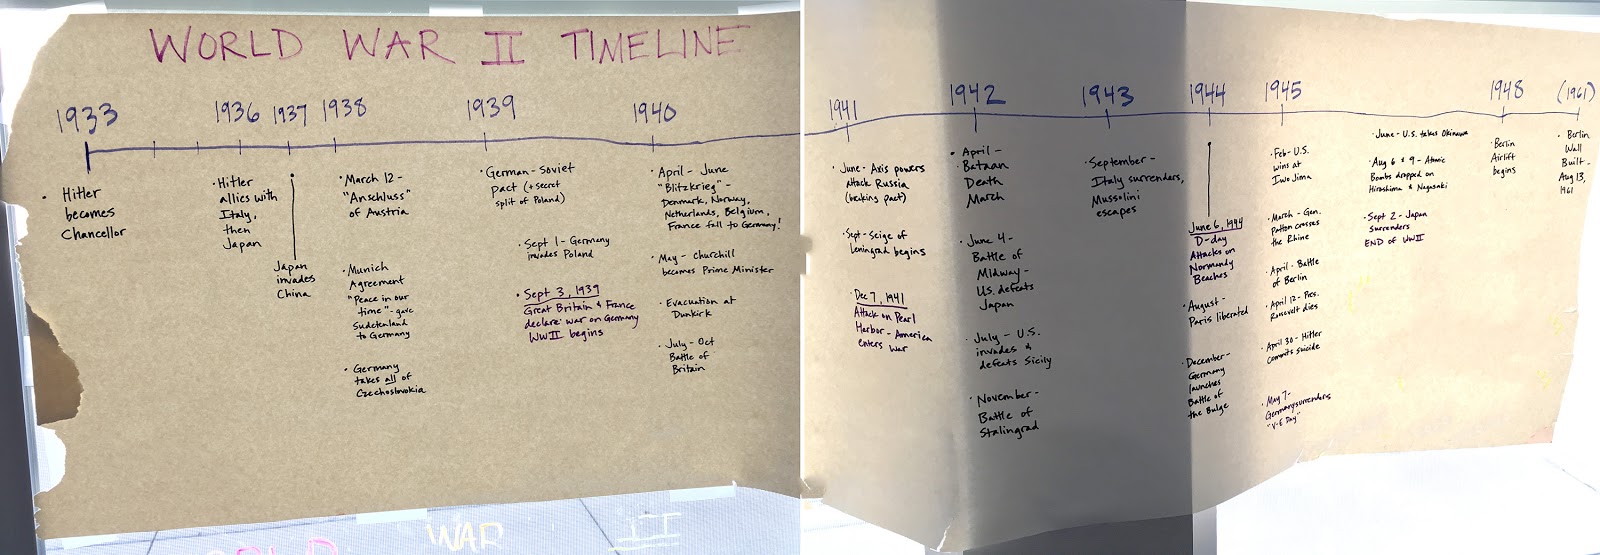 WORLD WAR II TIMELINE
1933
1936
1937
1938
1939
1940
• Hitler
becomes
Chancellor
• Hitler
allies with
Italy,
then
Japan
Japan
invades
China
• March 12 -
"Anschluss"
of Austria
• Munich
Agreement
"Peace in our
time" - gave
Sudetenland
to Germany
• Germany
takes all of
Czechoslovokia
German-Soviet
pact (+ secret
split of Poland)
• Sept 1 - Germany
invades Poland
• Sept 3, 1939
Great Britain & France
declare war on Germany
WWII begins
• April - June
"Blitzkrieg" -
Denmark, Norway,
Netherlands, Belgium,
France fall to Germany!
• May - Churchill
becomes Prime Minister
• Evacuation at
Dunkirk
• July - Oct
Battle of
Britain
1941
1942
1943
1944
1945
1948
(1961)
• June - Axis powers
attack Russia
(breaking pact)
• Sept - Seige of
Leningrad begins
• Dec 7, 1941
Attack on Pearl
Harbor - America
enters war
• April -
Bataan
Death
March
• June 4 -
Battle of
Midway -
U.S. defeats
Japan
• July - U.S.
invades &
defeats Sicily
• November -
Battle of
Stalingrad
• September -
Italy surrenders,
Mussolini
escapes
June 6, 1944
D-day
Attacks on
Normandy
Beaches
• August -
Paris liberated
• December -
Germany
launches
Battle of
the Bulge
• Feb - U.S.
wins at
Iwo Jima
• March - Gen.
Patton crosses
the Rhine
• April - Battle
of Berlin
• April 12 - Pres.
Roosevelt dies
• April 30 - Hitler
commits suicide
• May 7 -
Germany surrenders
"V-E Day"
• June - U.S. takes Okinawa
• Aug 6 & 9 - Atomic
Bombs dropped on
Hiroshima & Nagasaki
• Sept 2 - Japan
Surrenders
END of WWII
• Berlin
Airlift
begins
• Berlin
Wall
Built -
Aug 13,
1961
WORLD WAR II